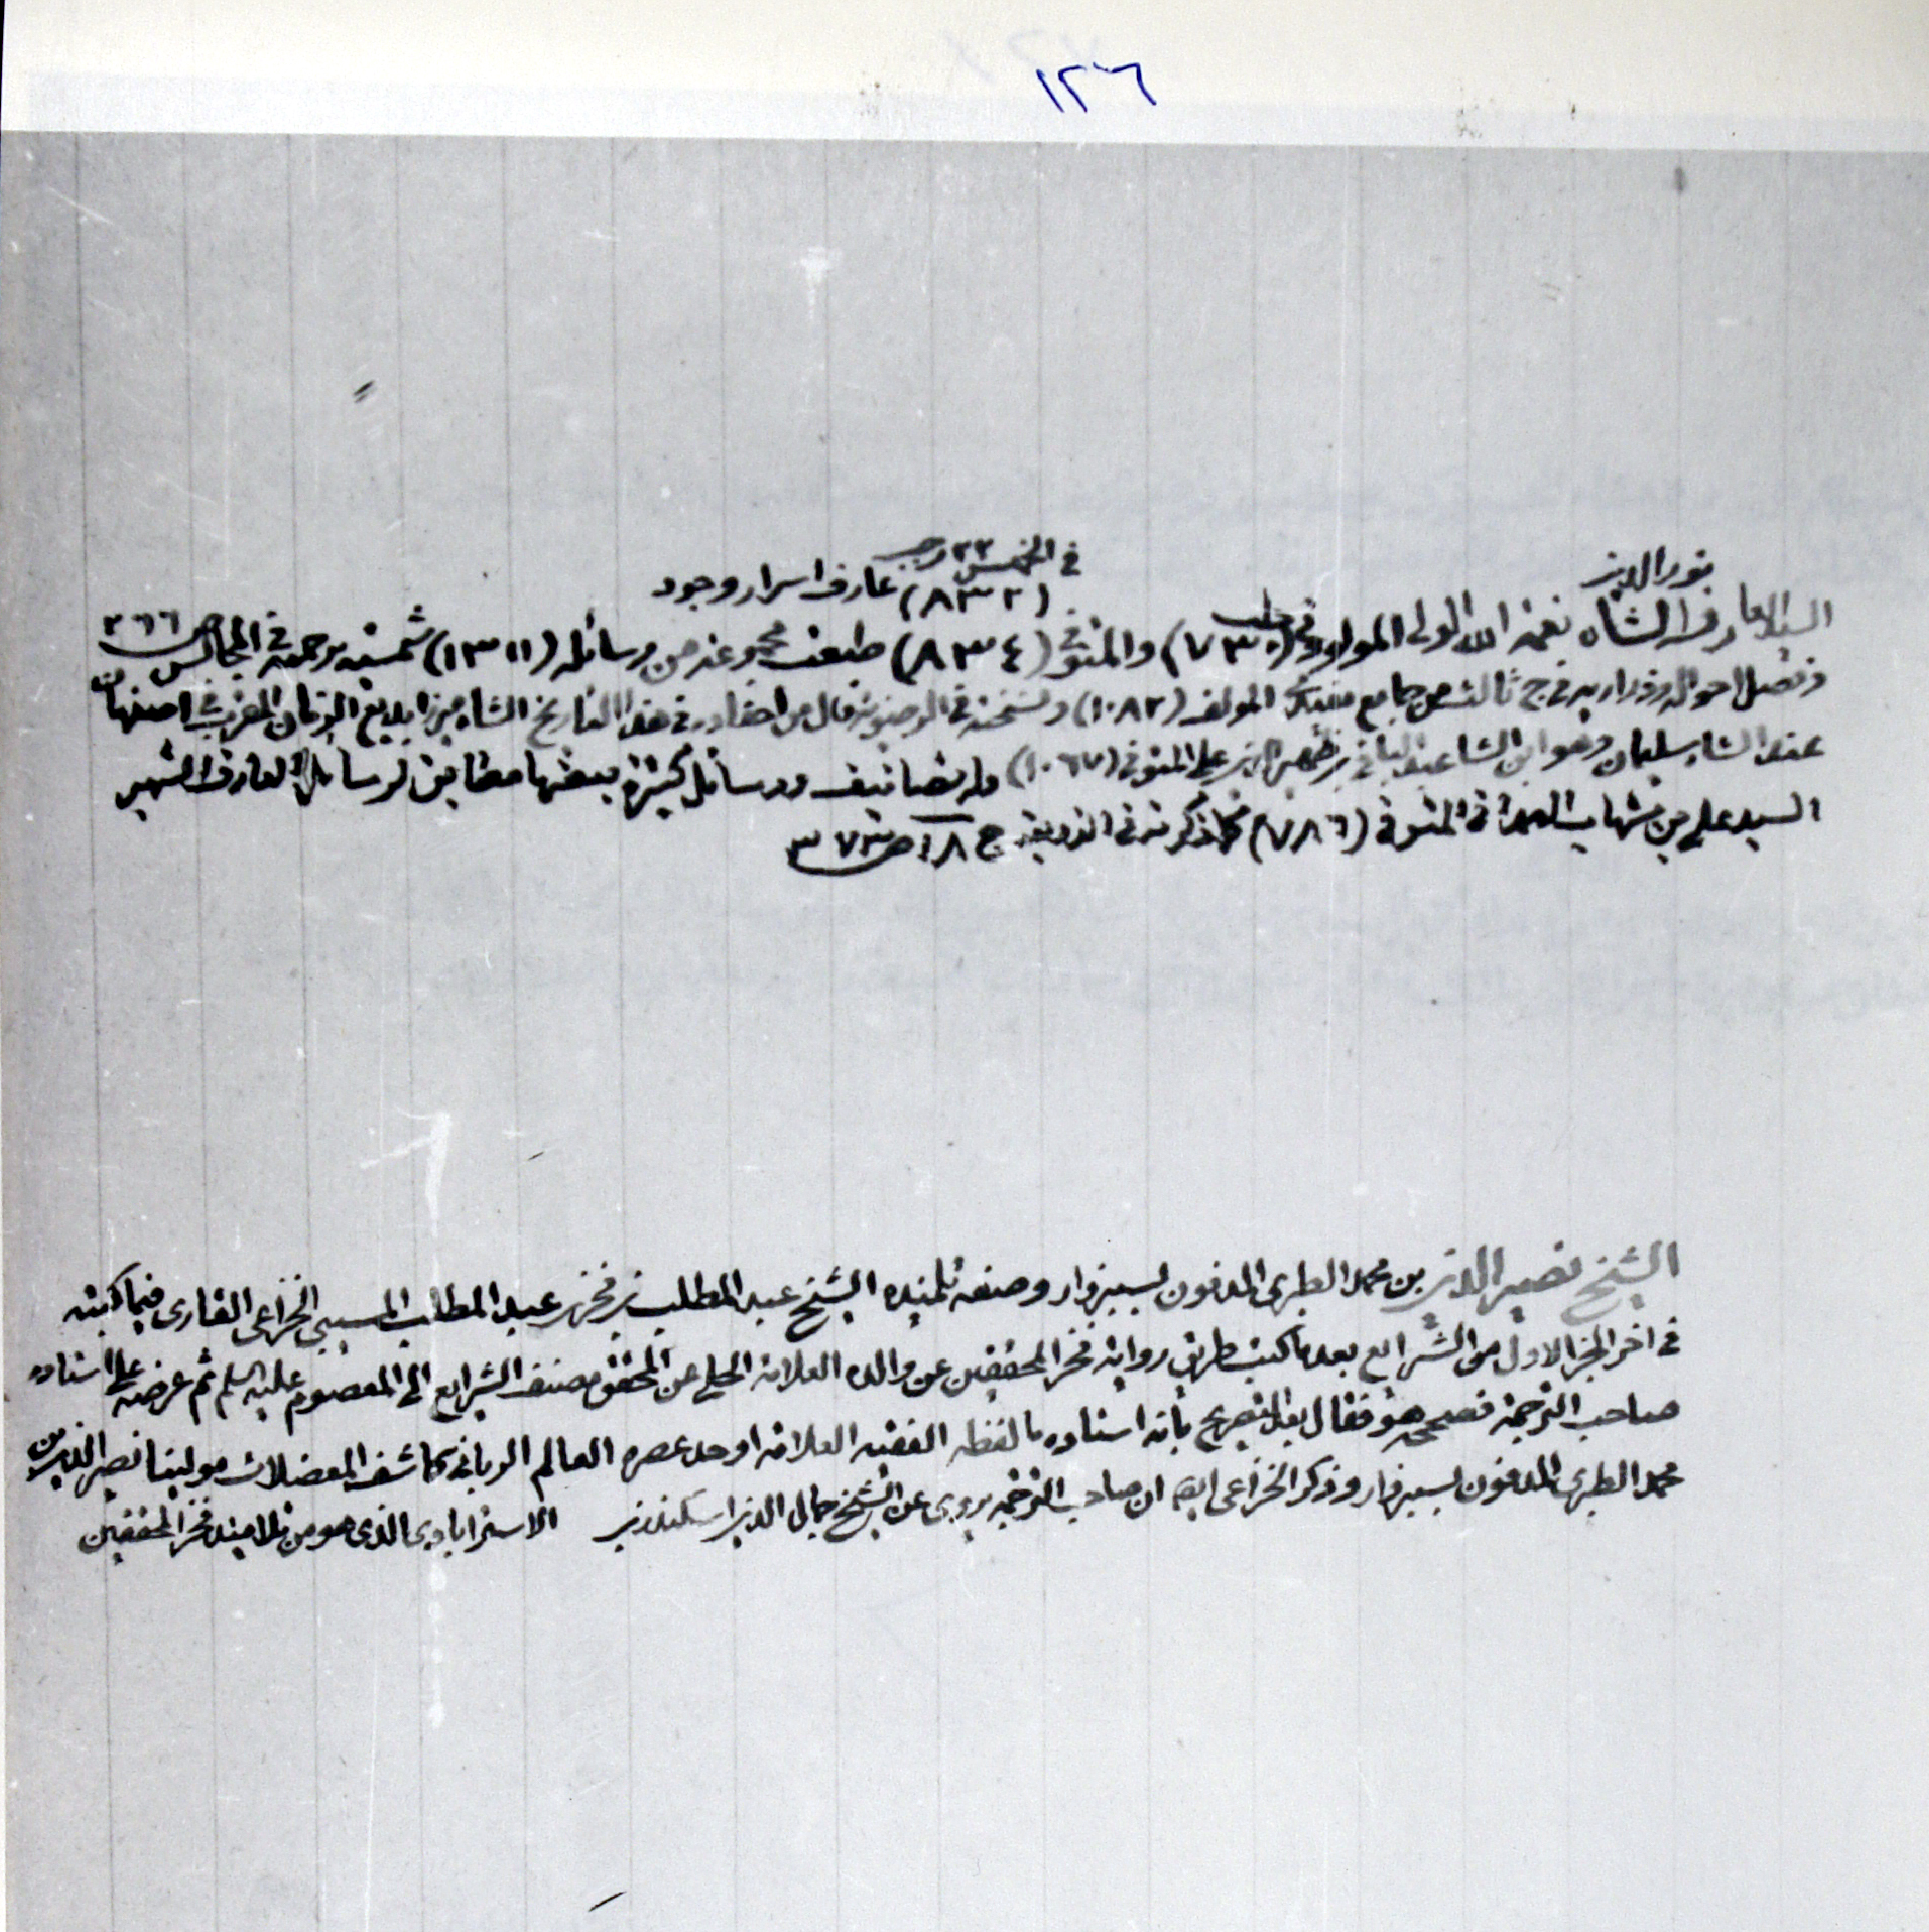 ١٢٦
نور الدين
في الخميس ٢٢ رجب
(٨٣٢) عارف اسرار وجود
السيد العارف الشاه نعمة الله الولى المولود في حلب (٧٣٠) والمتوفى (٨٣٤) طبعت مجموعة من رسائله (١٣١١) شمسية ترجمته في المجالس ص ٢٦٦
وفصل احواله وذراريه في ج ثالث من جامع مفيدى المولف (١٠٨٢) ونسخته في الرضوية قال من احفاده في هذا التاريخ الشاه ميرزا بديع الزمان المقرب في اصفهان
عند الشاه سليمان وهو ابن الشاه عبد الباقي بن ظهير الدين على المتوفى (١٠٦٧) وله تصانيف ورسائل كثيرة بعضها مطابق لرسائل العارف الشهير
السيد على بن شهاب الهمدانى المتوفى (٧٨٦) كما ذكرته في الذريعة ج ١٨ ص ٣٧٣
الشيخ نصير الدين بن محمد الطبرى المدفون بسبزوار وصفه تلميذه الشيخ عبد المطلب بن فخر بن عبد المطلب المسيبى الخزاعى القارى فيما كتبه
في اخر الجزء الاول من الشرايع بعد ما كتب طريق رواية فخر المحققين عن والده العلامة الحلي عن المحقق مصنف الشرايع الى المعصوم عليه السلم ثم عرضه على استاده
صاحب الترجمة فصححه هو فقال بعد التصريح بانه استاده ما لفظه الفقيه العلامة اوحد عصره العالم الربانى كاشف المعضلات مولينا نصير الدين بن
محمد الطبرى المدفون بسبزوار وذكر الخزاعى ايضا ان صاحب الترجمة يروى عن الشيخ جمال الدين اسكندر بن الاسترابادى الذى هو من تلاميذ فخر المحققين